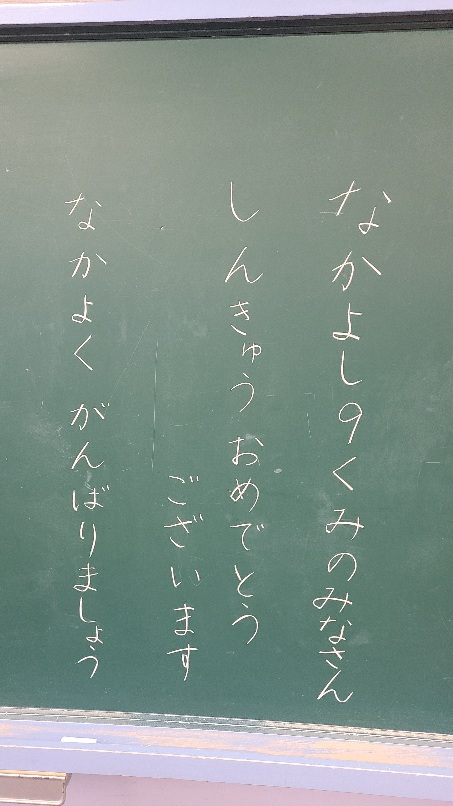 なかよし9くみのみなさん
しんきゅう おめでとう
ございます
なかよく がんばりましょう